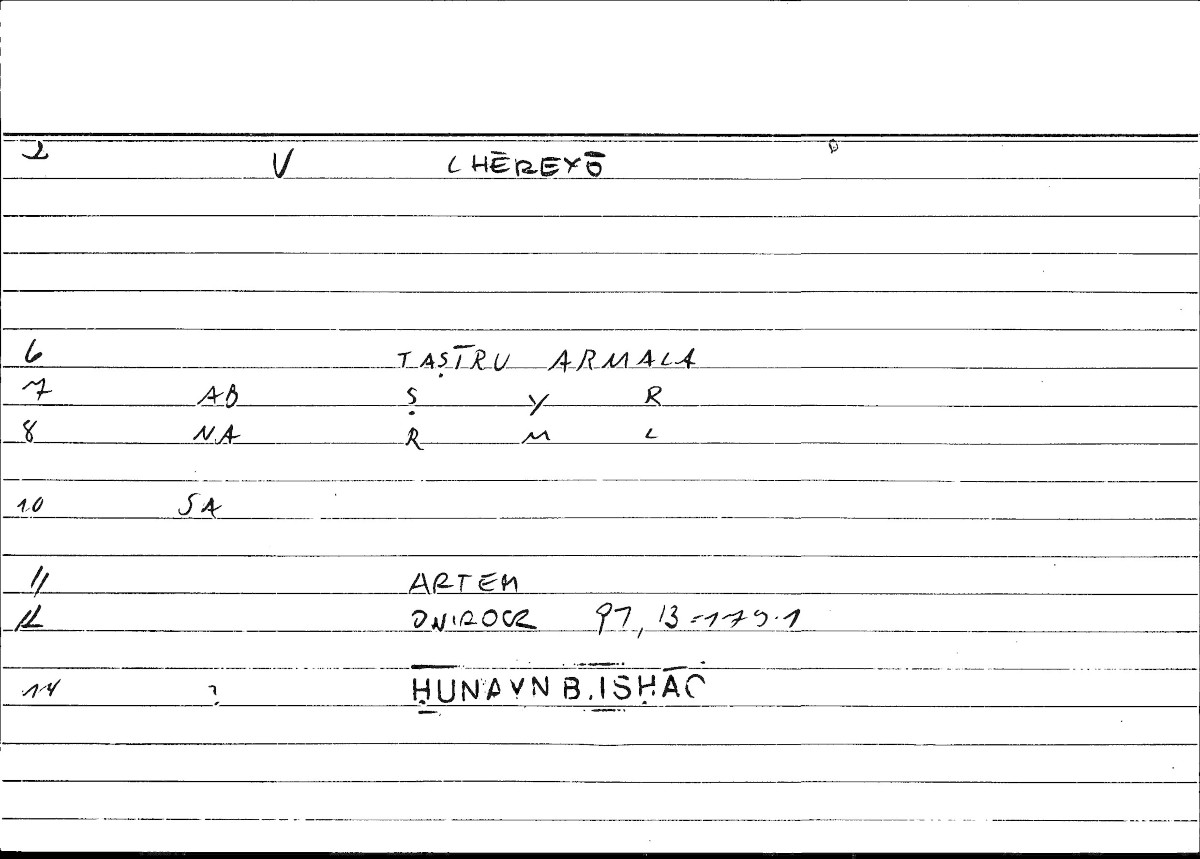 2 V CHĒREYŌ
6 TAṢĪRU ARMALA
7 AB Ṣ Y R
8 NA R M L
10 SA
11 ARTEM
12 ONIROCR 97, 13 = 179.1
14 ? ḤUNAYN B. ISḤĀQ